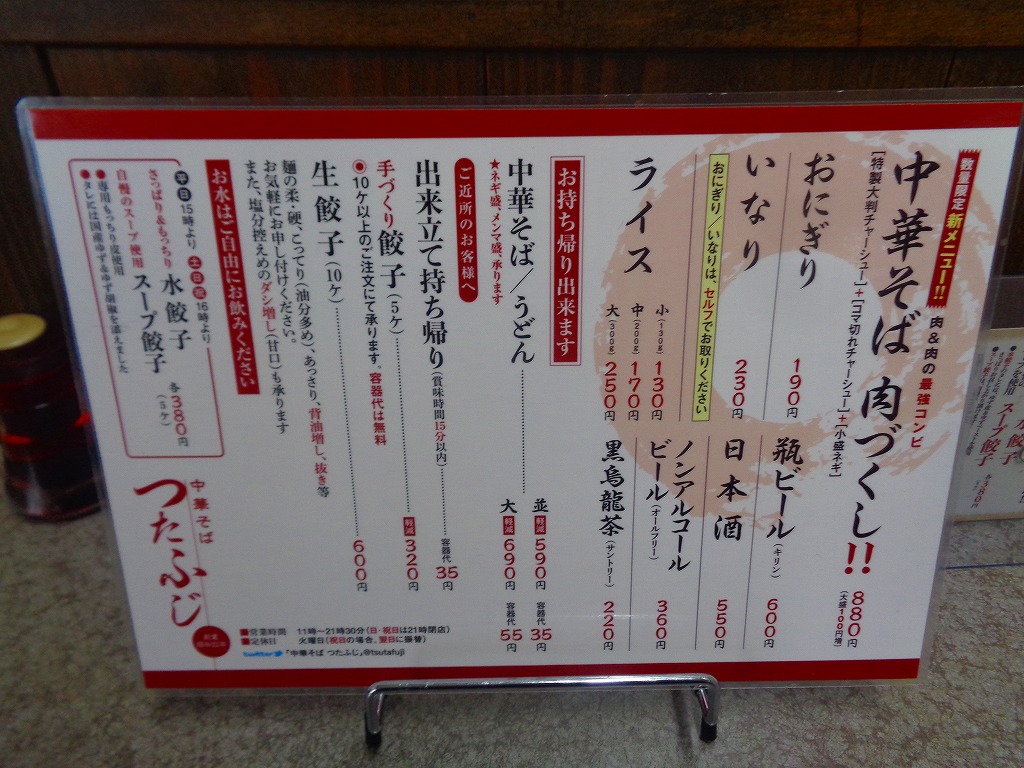 数量限定 新メニュー!!
肉&肉の最強コンビ
中華そば 肉づくし!!
880円
(大盛100円増)
[特製大判チャーシュー]+[コマ切れチャーシュー]+[小盛ネギ]
おにぎり
190円
いなり
230円
おにぎり/いなりは、セルフでお取りください
ライス
小(130g)130円
中(200g)170円
大(300g)250円
瓶ビール(キリン)
600円
日本酒
550円
ノンアルコール
ビール(オールフリー)
360円
黒烏龍茶(サントリー)
220円
お持ち帰り出来ます
中華そば/うどん
並 軽減 590円 容器代 35円
大 軽減 690円 容器代 55円
★ネギ盛、メンマ盛、承ります
ご近所のお客様へ
出来立て持ち帰り(賞味時間15分以内)
容器代 35円
手づくり餃子(5ケ)
軽減 320円
◉10ケ以上のご注文にて承ります。容器代は無料
生餃子(10ケ)
600円
麺の柔・硬、こってり(油分多め)、あっさり、背油増し、抜き等
お気軽にお申し付けください。
また、塩分控えめのダシ増し(甘口)も承ります
お水はご自由にお飲みください
平日15時より 土日祝16時より
さっぱり&もっちり 水餃子
自慢のスープ使用 スープ餃子
各380円
(5ケ)
●専用もっちり皮使用
●タレには国産ゆず&ゆず胡椒を添えました
中華そば
つたふじ
■営業時間 11時~21時30分(日・祝日は21時閉店)
■定休日 火曜日(祝日の場合、翌日に振替)
twitter「中華そば つたふじ」@tsutafuji
スープ餃子
各380円